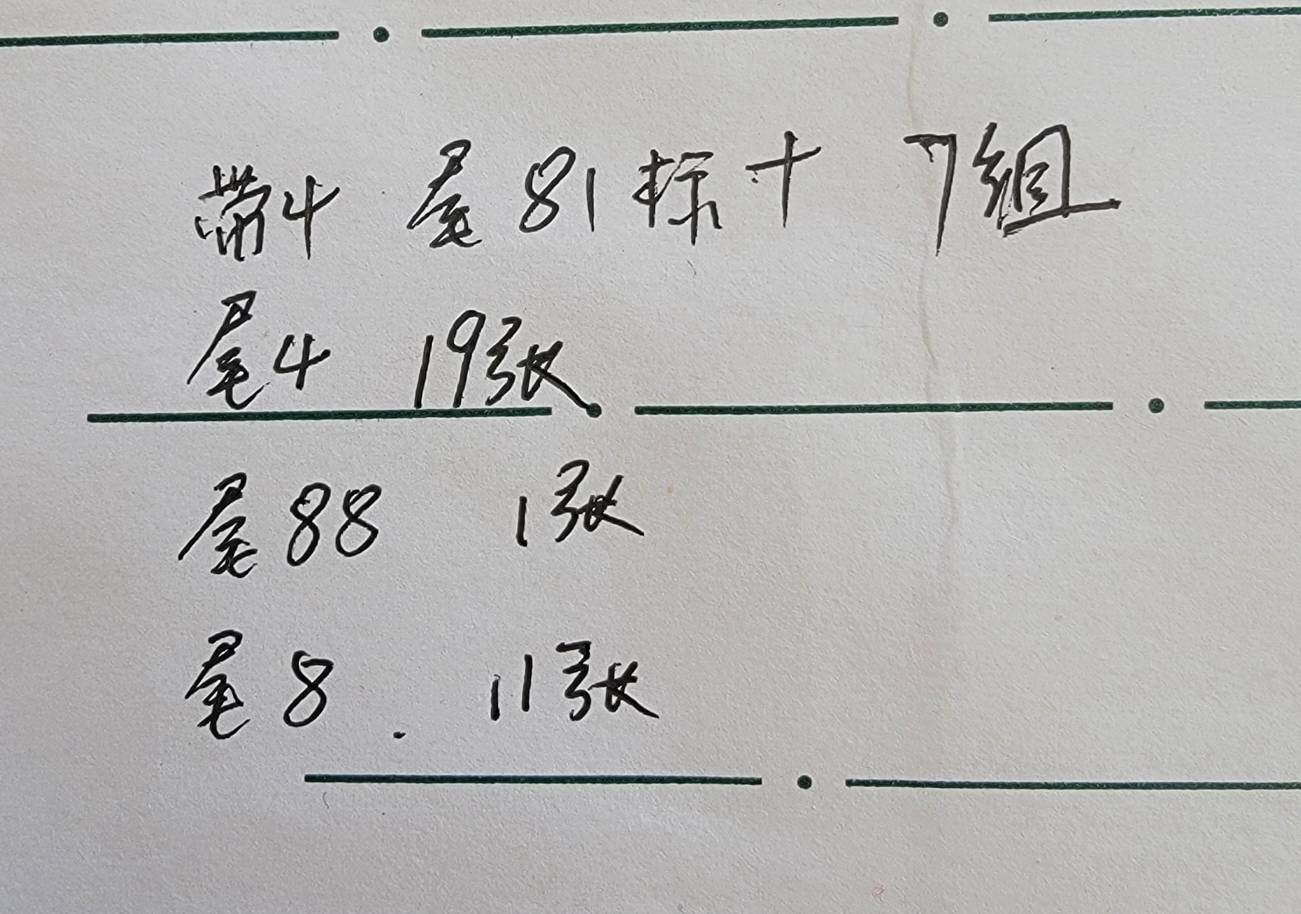 带4 尾81标十 7组
尾4 19张
尾88 1张
尾8. 11张